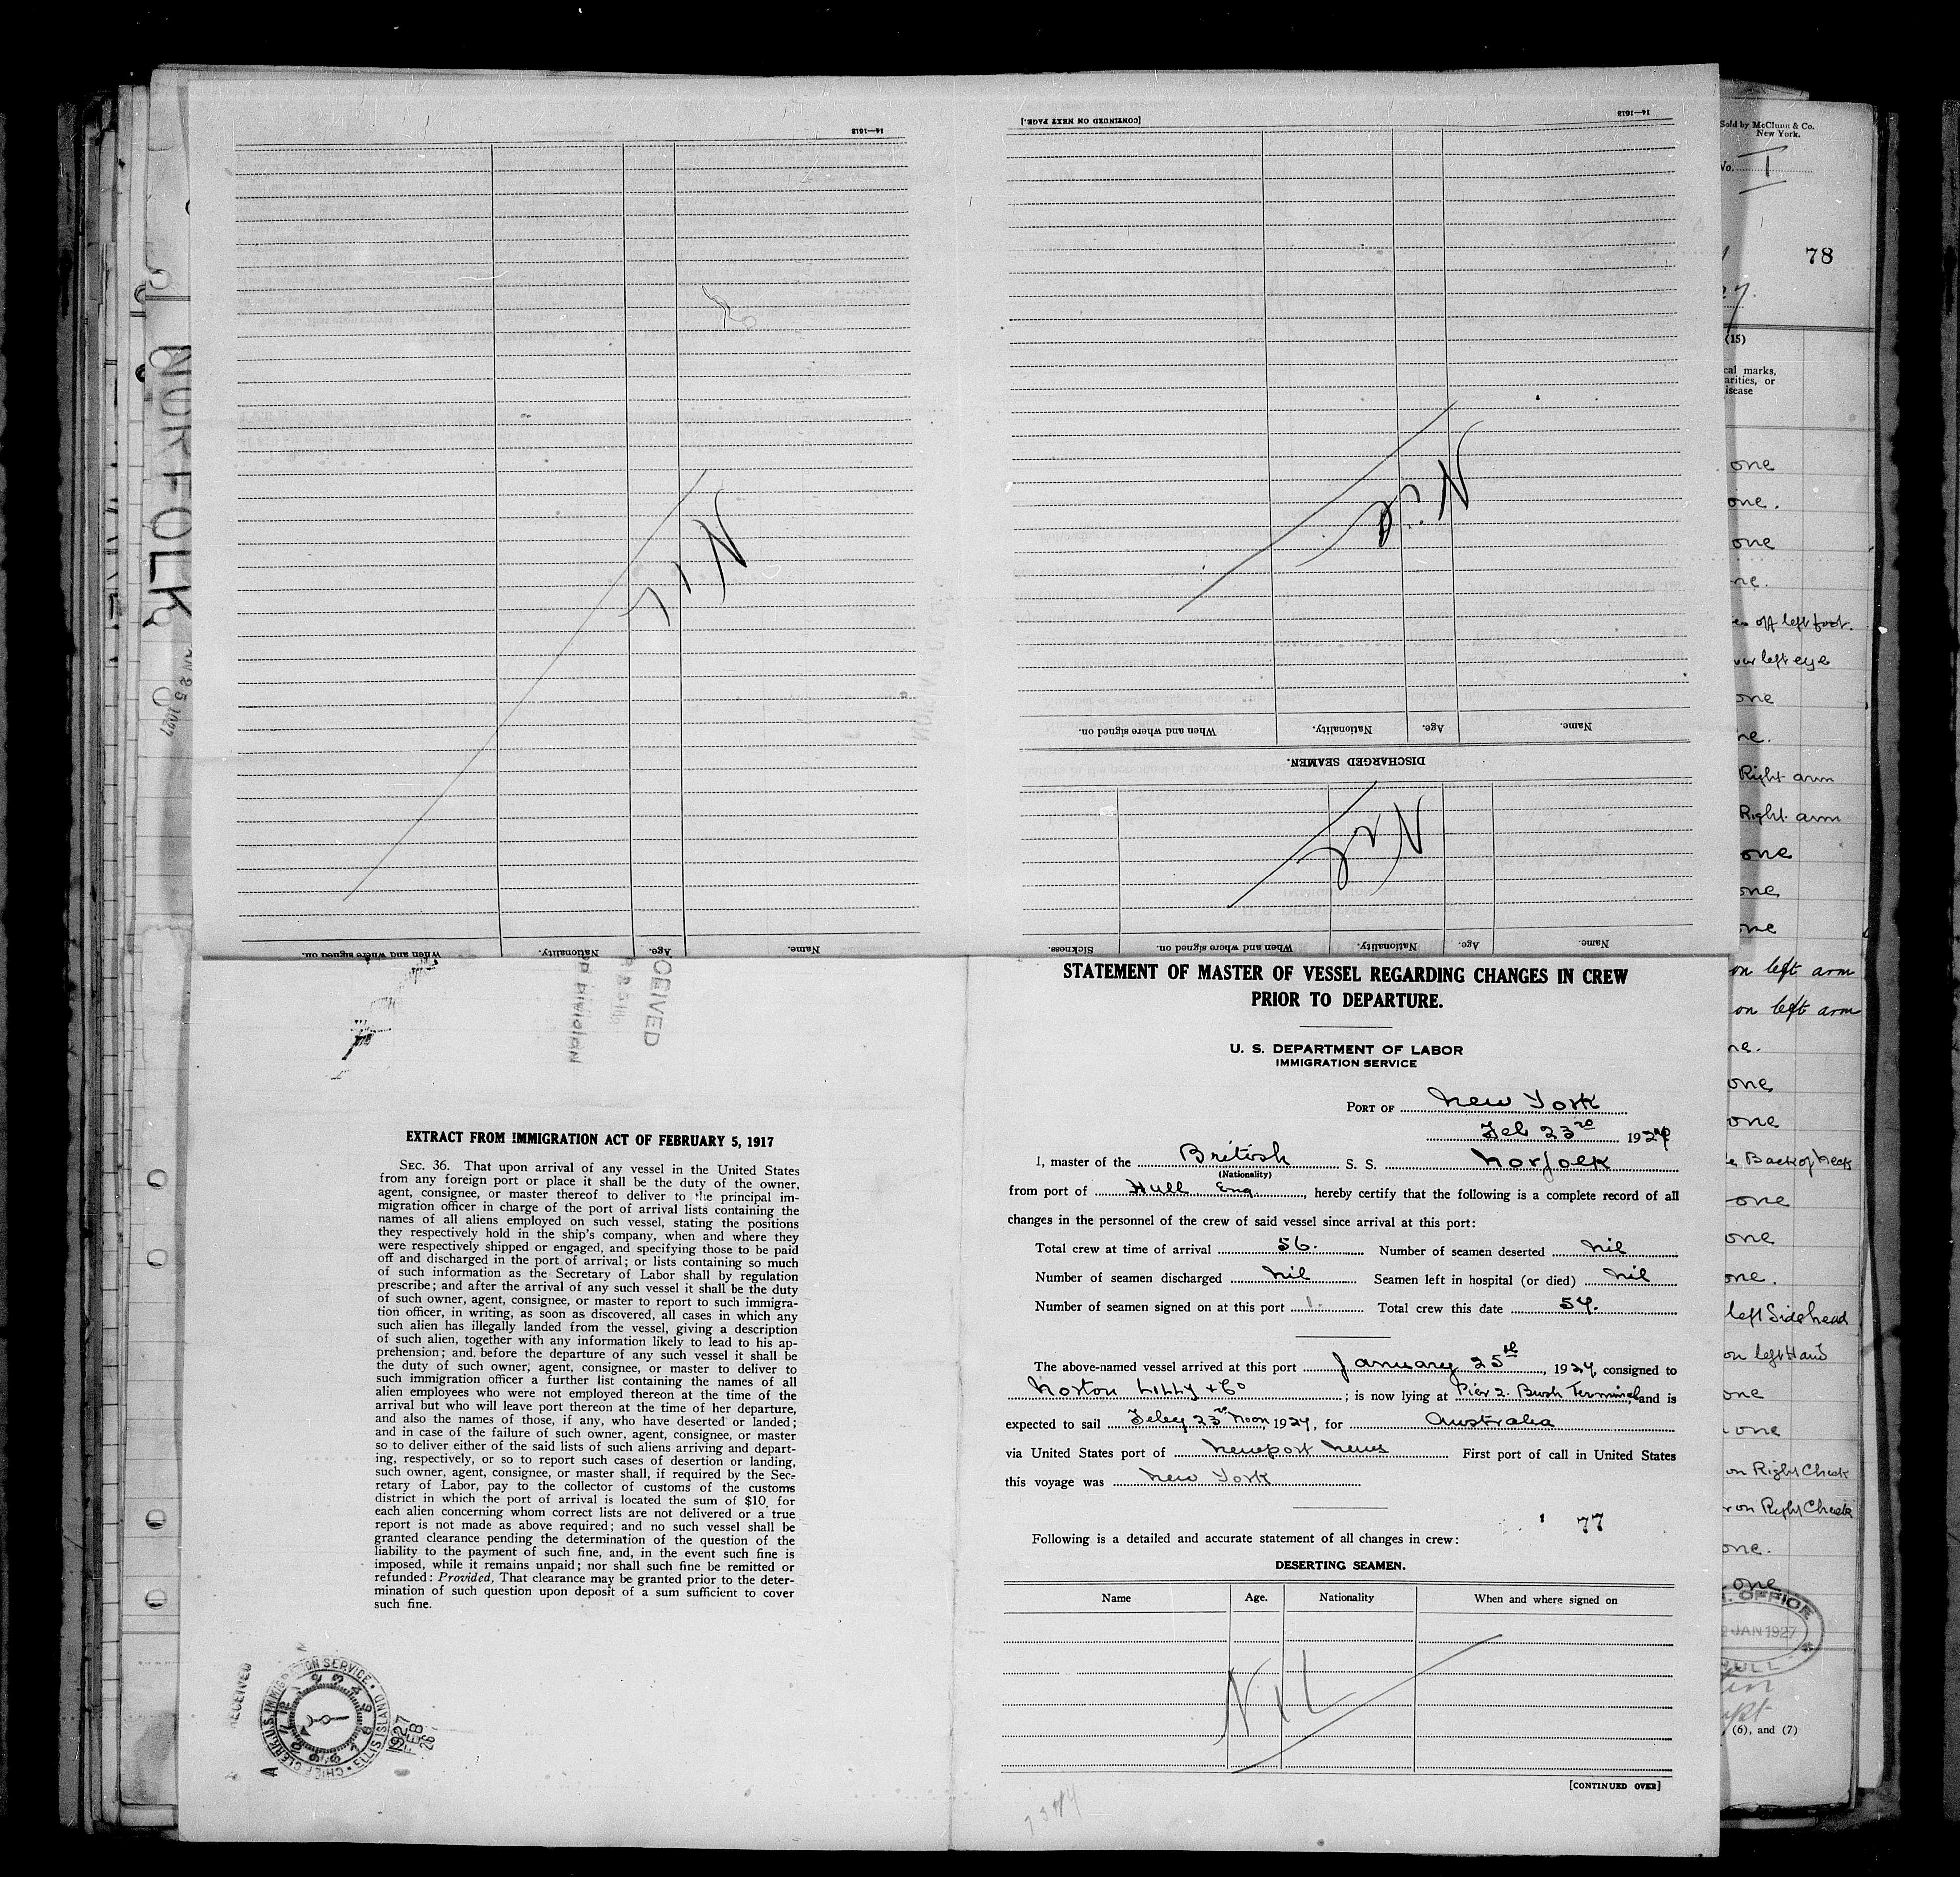 14—1613
[CONTINUED ON NEXT PAGE.]
14—1613
Nil
Nil
When and where signed on.
Nationality.
Age.
Name.
DISCHARGED SEAMEN.
Nil
When and where signed on.
Nationality.
Age.
Name.
Sickness.
When and where signed on.
Nationality.
Age.
Name.
Sold by McClunn & Co.
New York.
No. 1
78
(15)
NORFOLK
RECEIVED
EXTRACT FROM IMMIGRATION ACT OF FEBRUARY 5, 1917
SEC. 36. That upon arrival of any vessel in the United States
from any foreign port or place it shall be the duty of the owner,
agent, consignee, or master thereof to deliver to the principal im-
migration officer in charge of the port of arrival lists containing the
names of all aliens employed on such vessel, stating the positions
they respectively hold in the ship's company, when and where they
were respectively shipped or engaged, and specifying those to be paid
off and discharged in the port of arrival; or lists containing so much
of such information as the Secretary of Labor shall by regulation
prescribe; and after the arrival of any such vessel it shall be the duty
of such owner, agent, consignee, or master to report to such immigra-
tion officer, in writing, as soon as discovered, all cases in which any
such alien has illegally landed from the vessel, giving a description
of such alien, together with any information likely to lead to his ap-
prehension; and before the departure of any such vessel it shall be
the duty of such owner, agent, consignee, or master to deliver to
such immigration officer a further list containing the names of all
alien employees who were not employed thereon at the time of the
arrival but who will leave port thereon at the time of her departure,
and also the names of those, if any, who have deserted or landed;
and in case of the failure of such owner, agent, consignee, or master
so to deliver either of the said lists of such aliens arriving and depart-
ing, respectively, or so to report such cases of desertion or landing,
such owner, agent, consignee, or master shall, if required by the Sec-
retary of Labor, pay to the collector of customs of the customs
district in which the port of arrival is located the sum of $10 for
each alien concerning whom correct lists are not delivered or a true
report is not made as above required; and no such vessel shall be
granted clearance pending the determination of the question of the
liability to the payment of such fine, and, in the event such fine is
imposed, while it remains unpaid; nor shall such fine be remitted or
refunded: Provided, That clearance may be granted prior to the deter-
mination of such question upon deposit of a sum sufficient to cover
such fine.
RECEIVED
CHIEF CLERK U.S. IMMIGRATION SERVICE • ELLIS ISLAND
1927
FEB
26
STATEMENT OF MASTER OF VESSEL REGARDING CHANGES IN CREW
PRIOR TO DEPARTURE.
U. S. DEPARTMENT OF LABOR
IMMIGRATION SERVICE
PORT OF New York
Feb 23rd 1927
I, master of the British S. S. Norfolk
(Nationality)
from port of Hull Eng., hereby certify that the following is a complete record of all
changes in the personnel of the crew of said vessel since arrival at this port:
Total crew at time of arrival 56. Number of seamen deserted nil
Number of seamen discharged nil Seamen left in hospital (or died) nil
Number of seamen signed on at this port 1. Total crew this date 57.
The above-named vessel arrived at this port January 25th, 1927, consigned to
Norton Lilly & Co; is now lying at Pier 2. Bush Terminal, and is
expected to sail Feby 23rd Noon, 1927, for Australia
via United States port of Newport News First port of call in United States
this voyage was New York
77
Following is a detailed and accurate statement of all changes in crew:
DESERTING SEAMEN.
Name Age. Nationality When and where signed on
NIL
[CONTINUED OVER]
cal marks,
arities, or
isease
one
one.
one
ne.
off left foot.
left eye
one
ne.
Right arm
Right arm
one
one
one
on left arm
on left arm
ne.
one
one
Back of neck
one
one
one.
left Side head
on left Hand
one
one
on Right Cheek
on Right Cheek
one.
one
OFFICE
JAN 1927
HULL
(6), and (7)